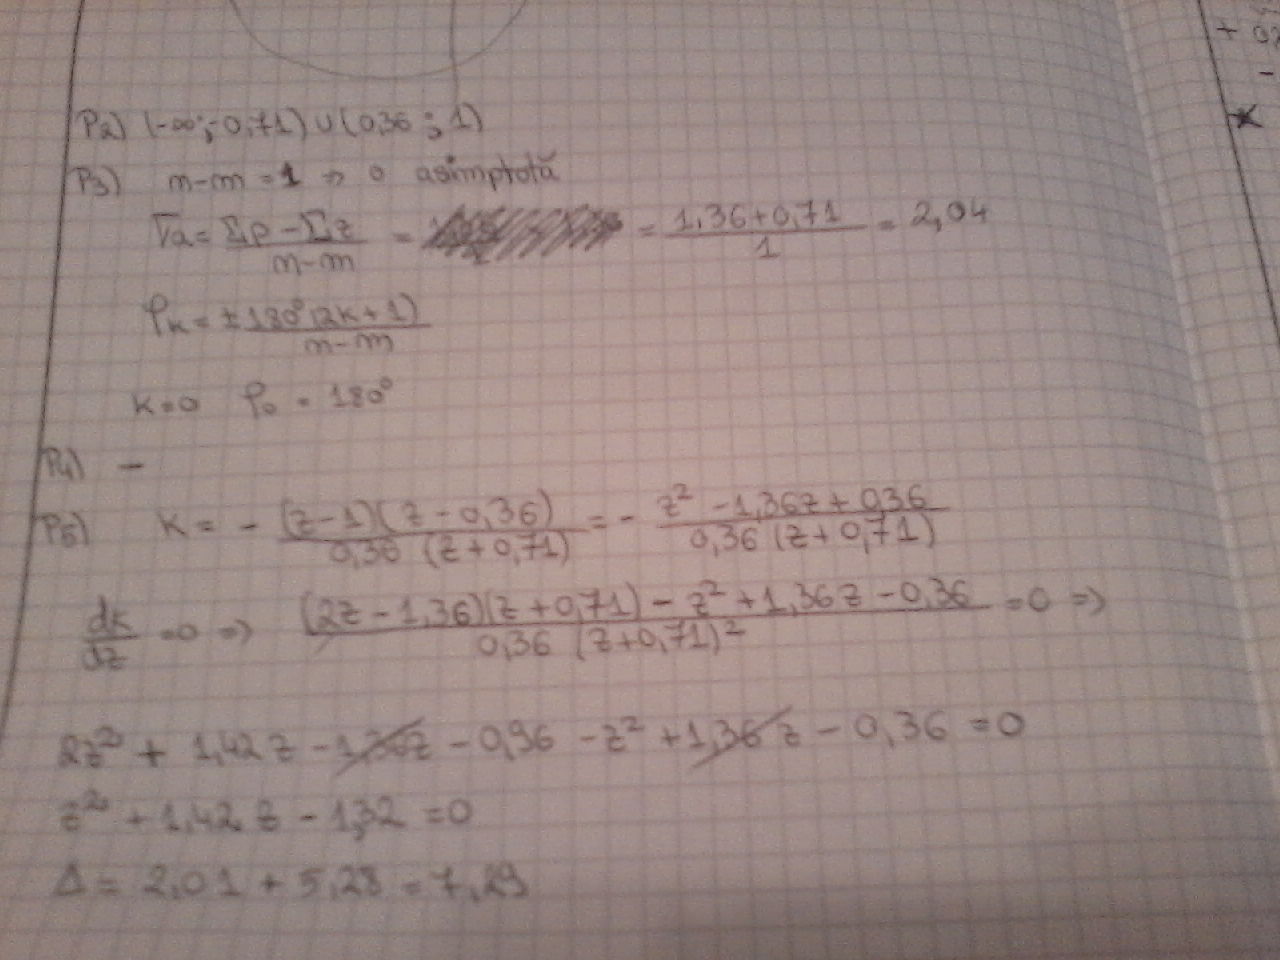 P2) (-∞;-0,71) ∪ (0,36 ; 1)
P3) n-m = 1 => o asimptotă
Γa = Σp - Σz / n-m = = 1,36+0,71 / 1 = 2,04
φk = ±180°(2k+1) / n-m
k=0 φ0 = 180°
P4) -
P5) K = - (z-1)(z-0,36) / 0,36 (z+0,71) = - z² -1,36z + 0,36 / 0,36 (z+0,71)
dk/dz =0 => (2z-1,36)(z+0,71) - z² +1,36z -0,36 / 0,36 (z+0,71)² =0 =>
2z² + 1,42z - 1,36z - 0,96 - z² + 1,36z - 0,36 = 0
z² + 1,42 z - 1,32 = 0
Δ = 2,01 + 5,28 = 7,29
+
-
*